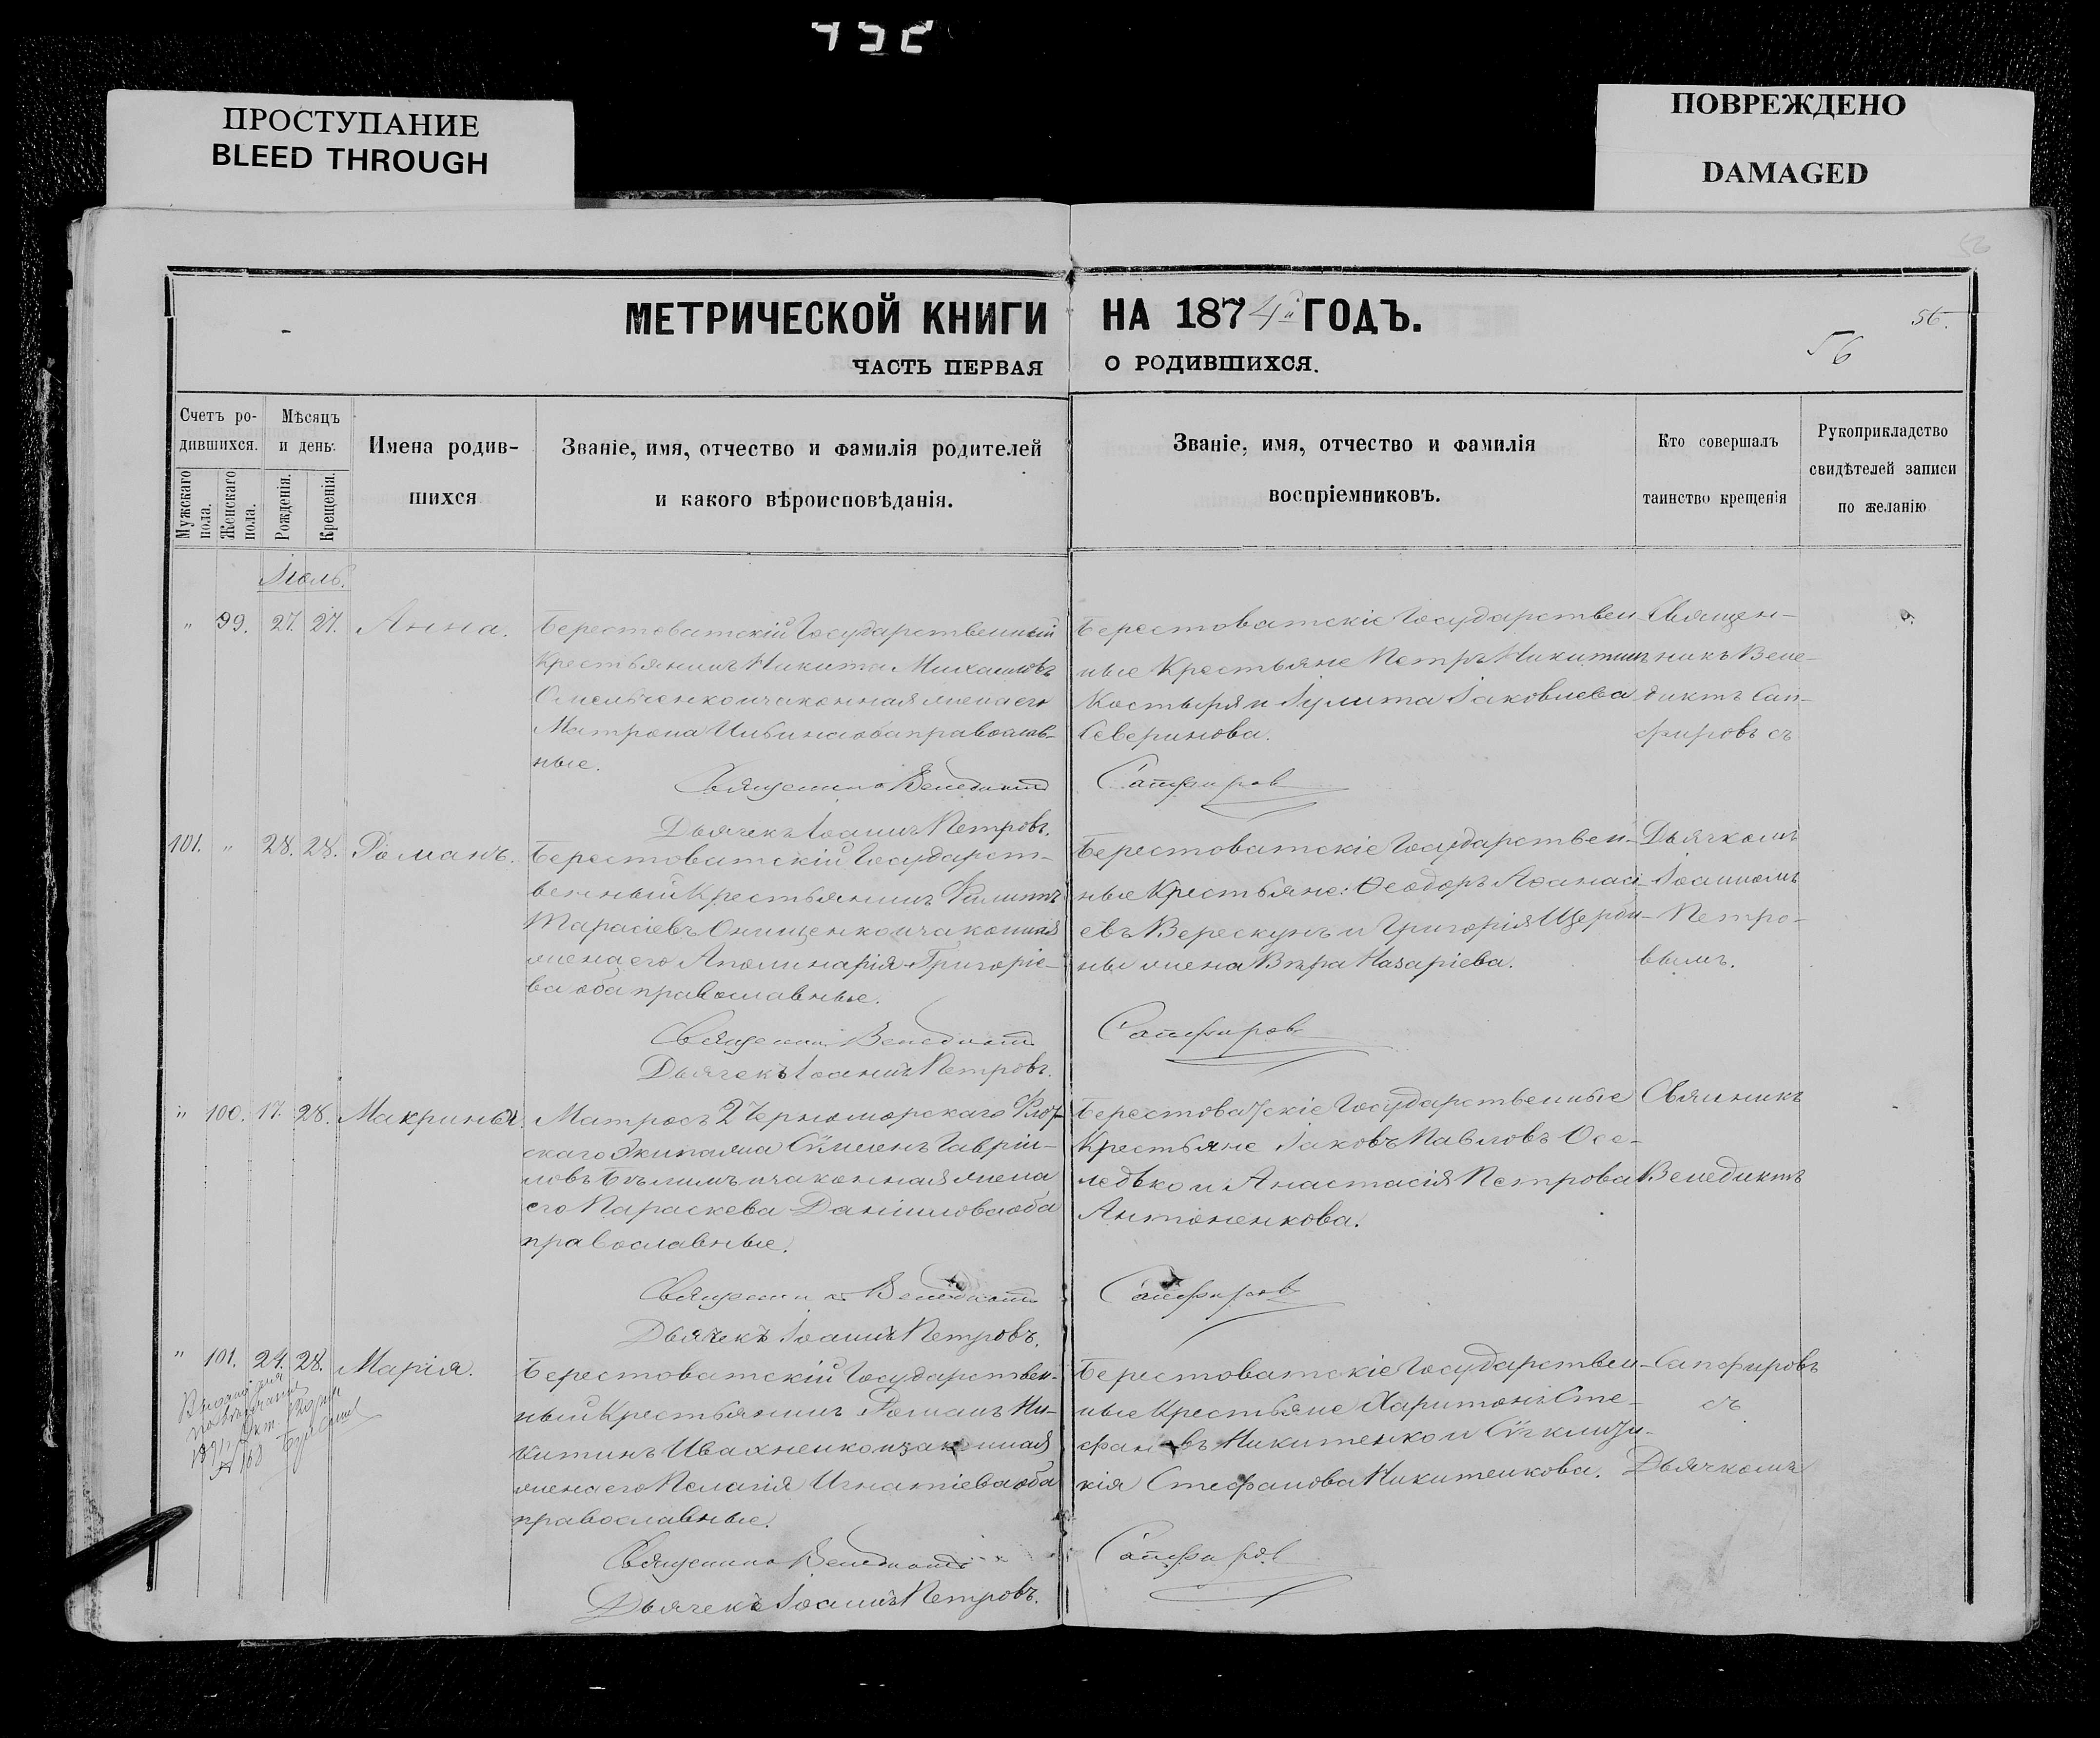 ПРОСТУПАНИЕ
BLEED THROUGH
ПОВРЕЖДЕНО
DAMAGED
56.
56
МЕТРИЧЕСКОЙ КНИГИ НА 1874й ГОДЪ.
ЧАСТЬ ПЕРВАЯ О РОДИВШИХСЯ.
Счетъ ро-
дившихся.
Мужскаго пола.
Женскаго пола.
Мѣсяцъ
и день.
Рожденія.
Крещенія.
Имена родив-
шихся
Званіе, имя, отчество и фамилія родителей
и какого вѣроисповѣданія.
Званіе, имя, отчество и фамилія
воспріемниковъ.
Кто совершалъ
таинство крещенія
Рукоприкладство
свидѣтелей записи
по желанію
Іюль.
" 99. 27. 27. Анна.
Берестоватскій Государственный
Крестьянинъ Никита Михаиловъ
Омельченко и законная жена его
Матрона Ильина оба православ-
ные.
Священникъ Венедиктъ
Дьячекъ Іоаннъ Петровъ.
Берестоватскіе Государствен
ные Крестьяне Петръ Никитинъ
Костыря и Іулита Іаковлева
Северинова.
Сапфировъ
Священ-
никъ Вене-
диктъ Сап-
фировъ съ
101. " 28. 28. Романъ.
Берестоватскій Государст-
венный Крестьянинъ Филиппъ
Тарасіевъ Онищенко и законная
жена его Аполинарія Григоріе-
ва оба православные.
Священникъ Венедиктъ
Дьячекъ Іоаннъ Петровъ.
Берестоватскіе Государствен-
ные Крестьяне: Ѳеодоръ Аѳанасі-
евъ Верескунъ и Григорія Щерби-
ны жена Вѣра Назаріева.
Сапфировъ
Дьячкомъ
Іоанномъ
Петро-
вымъ.
" 100. 17. 28. Макрина.
Матросъ 2 Черноморскаго Флот-
скаго Экипажа Сѵмеонъ Гавріи-
ловъ и законная жена
его Параскева Даніилова оба
православные.
Священникъ Венедиктъ
Дьячекъ Іоаннъ Петровъ.
Берестоватскіе Государственные
Крестьяне Іаковъ Павловъ Осе-
ледько и Анастасія Петрова
Антоненкова.
Сапфировъ
Свяникъ
Венедиктъ
" 101. 24. 28. Марія.
Берестоватскій Государствен-
ный Крестьянинъ Романъ Ни-
китинъ Ивахненко и законная
жена его Пелагія Игнатіева оба
православные.
Священникъ Венедиктъ
Дьячекъ Іоаннъ Петровъ.
Берестоватскіе Государствен-
ные Крестьяне Харитонъ Сте-
фановъ Никитенко и
кія Стефанова Никитенкова.
Сапфировъ
Сапфировъ
съ
Дьячкомъ
№ 168